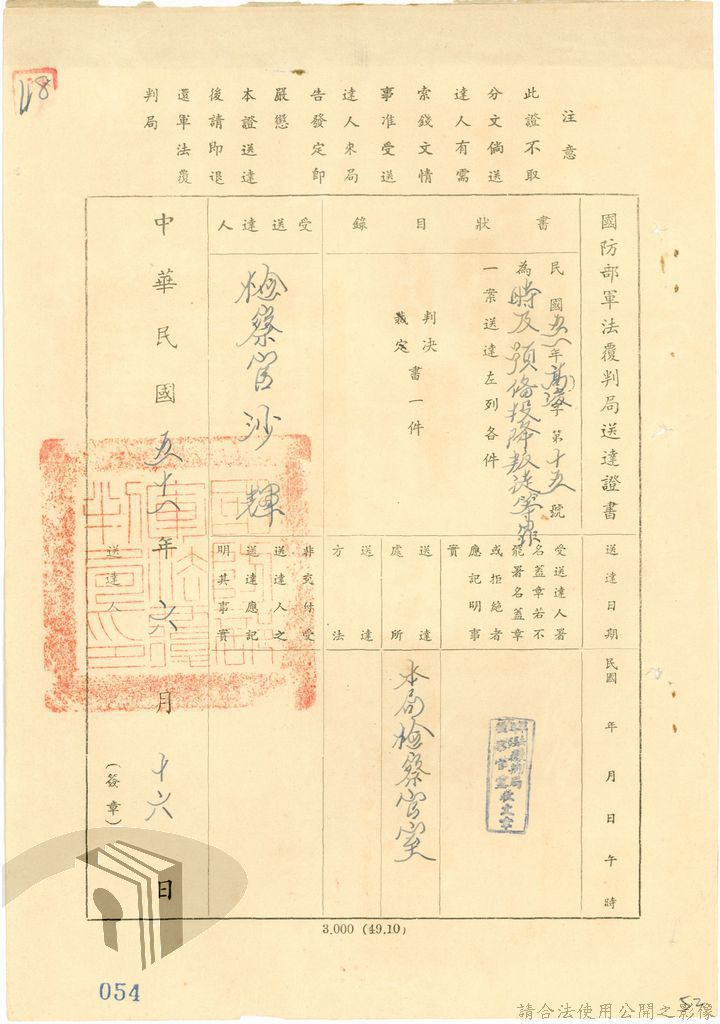 注意
此證不取
分文倘送
達人有需
索錢文情
事准受送
達人來局
告發定即
嚴懲
本證送達
後請即退
還軍法覆
判局
國防部軍法覆判局送達證書
送達日期
民國 年 月 日 午 時
書狀目錄
民國五八年高字第十五號
為時及預備投降叛徒等罪
一案送達左列各件
判決
裁定
書一件
受送達人署
名蓋章若不
能署名蓋章
或拒絕者
應記明事
實
送達處所
本局檢察官室
送達方法
受送達人
檢察官沙輝
非交付受
送達人之
送達應記
明其事實
中華民國五十八年六月十六日
送達人
(簽章)
3,000 (49.10)
054
52
請合法使用公開之影像